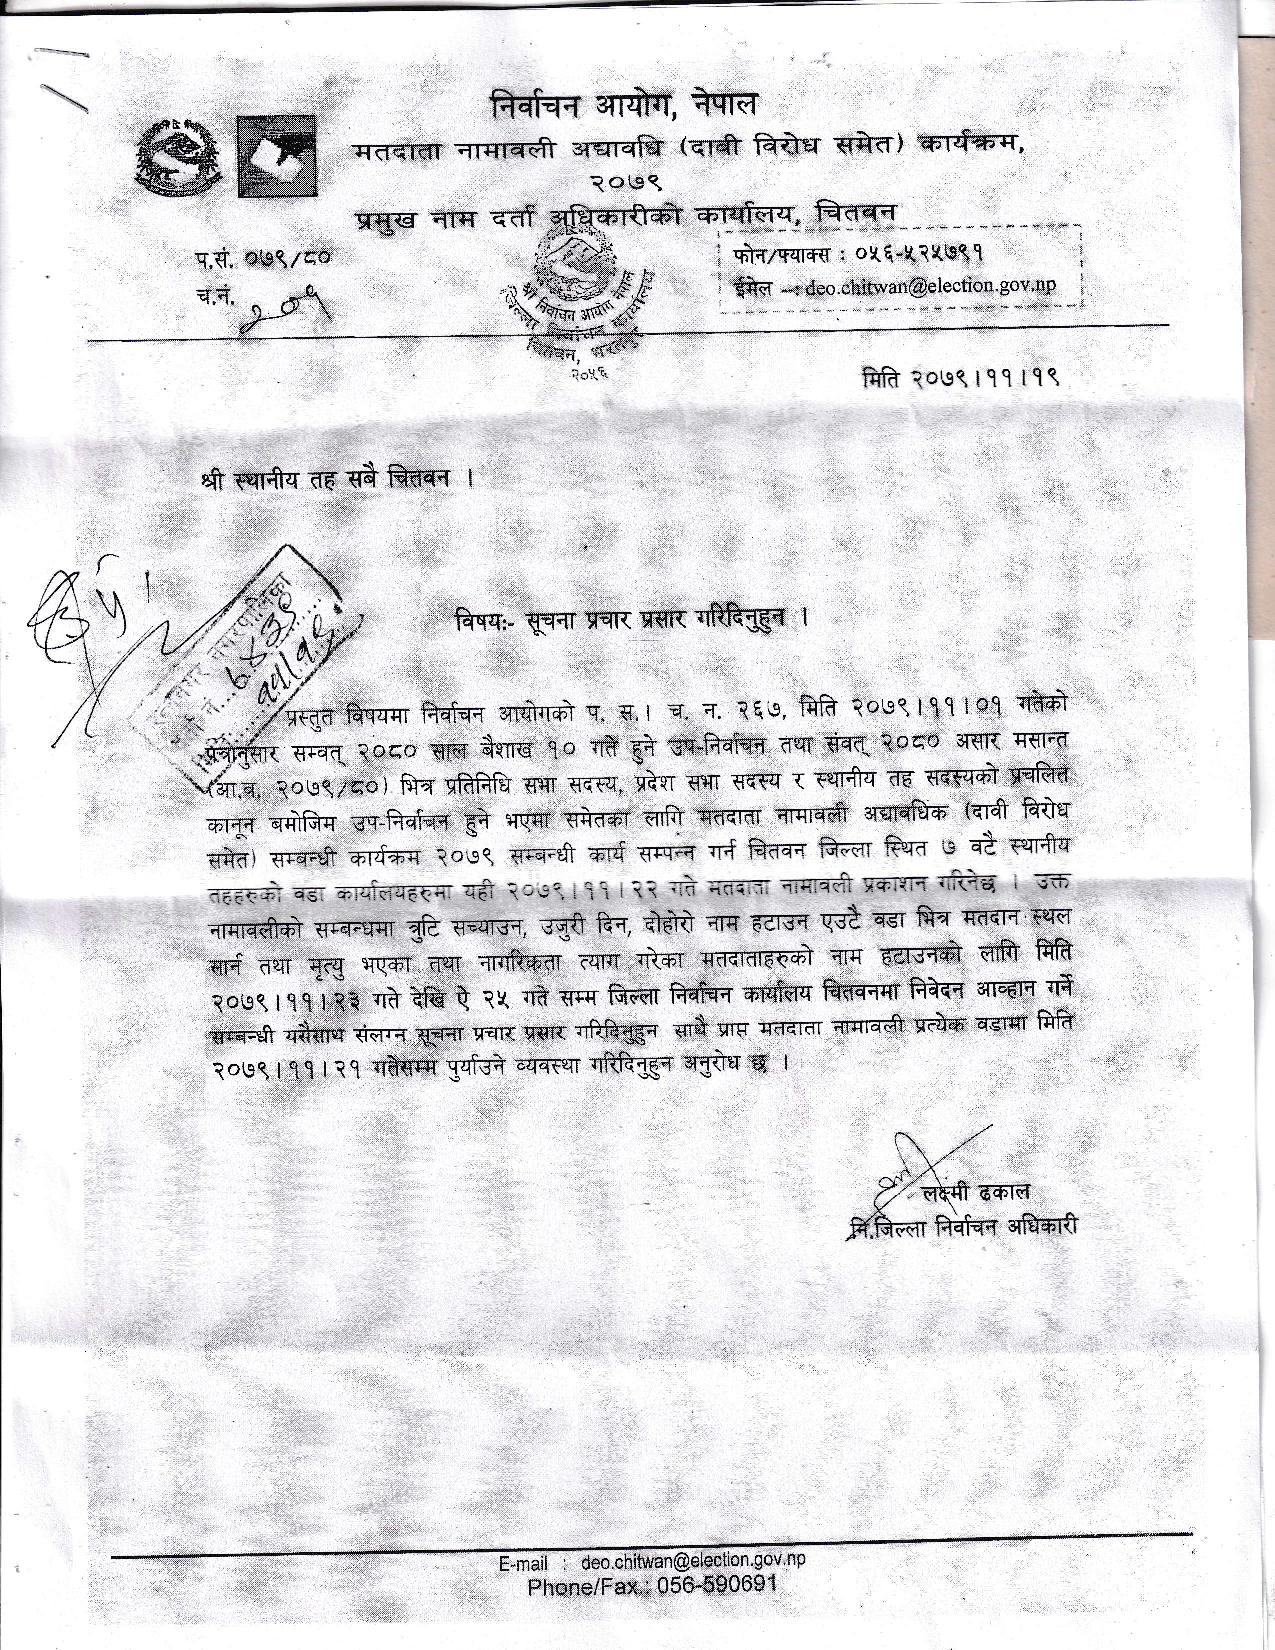 निर्वाचन आयोग, नेपाल
मतदाता नामावली अद्यावधि (दावी विरोध समेत) कार्यक्रम,
२०७९
प्रमुख नाम दर्ता अधिकारीको कार्यालय, चितवन
प.सं. ०७९/८०
च.नं. २०१
फोन/फ्याक्स : ०५६-५२५७९१
ईमेल –: deo.chitwan@election.gov.np
श्री निर्वाचन आयोग नेपाल
जिल्ला निर्वाचन कार्यालय
चितवन, भरतपुर
२०५६
मिति २०७९।११।१९
श्री स्थानीय तह सबै चितवन ।
नगरपालिका
विषय:- सूचना प्रचार प्रसार गरिदिनुहुन ।
प्रस्तुत विषयमा निर्वाचन आयोगको प. स.। च. न. २६७, मिति २०७९।११।०१ गतेको
पत्रानुसार सम्वत् २०८० साल बैशाख १० गते हुने उप-निर्वाचन तथा संवत् २०८० असार मसान्त
(आ.व. २०७९/८०) भित्र प्रतिनिधि सभा सदस्य, प्रदेश सभा सदस्य र स्थानीय तह सदस्यको प्रचलित
कानून बमोजिम उप-निर्वाचन हुने भएमा समेतका लागि मतदाता नामावली अद्यावधिक (दावी विरोध
समेत) सम्बन्धी कार्यक्रम २०७९ सम्बन्धी कार्य सम्पन्न गर्न चितवन जिल्ला स्थित ७ वटै स्थानीय
तहहरुको वडा कार्यालयहरुमा यही २०७९।११।२२ गते मतदाता नामावली प्रकाशन गरिनेछ । उक्त
नामावलीको सम्बन्धमा त्रुटि सच्याउन, उजुरी दिन, दोहोरो नाम हटाउन एउटै वडा भित्र मतदान स्थल
सार्न तथा मृत्यु भएका तथा नागरिकता त्याग गरेका मतदाताहरुको नाम हटाउनको लागि मिति
२०७९।११।२३ गते देखि ऐ २५ गते सम्म जिल्ला निर्वाचन कार्यालय चितवनमा निवेदन आव्हान गर्ने
सम्बन्धी यसैसाथ संलग्न सूचना प्रचार प्रसार गरिदिनुहुन साथै प्राप्त मतदाता नामावली प्रत्येक वडामा मिति
२०७९।११।२१ गतेसम्म पुर्याउने व्यवस्था गरिदिनुहुन अनुरोध छ ।
लक्ष्मी ढकाल
नि.जिल्ला निर्वाचन अधिकारी
E-mail : deo.chitwan@election.gov.np
Phone/Fax : 056-590691